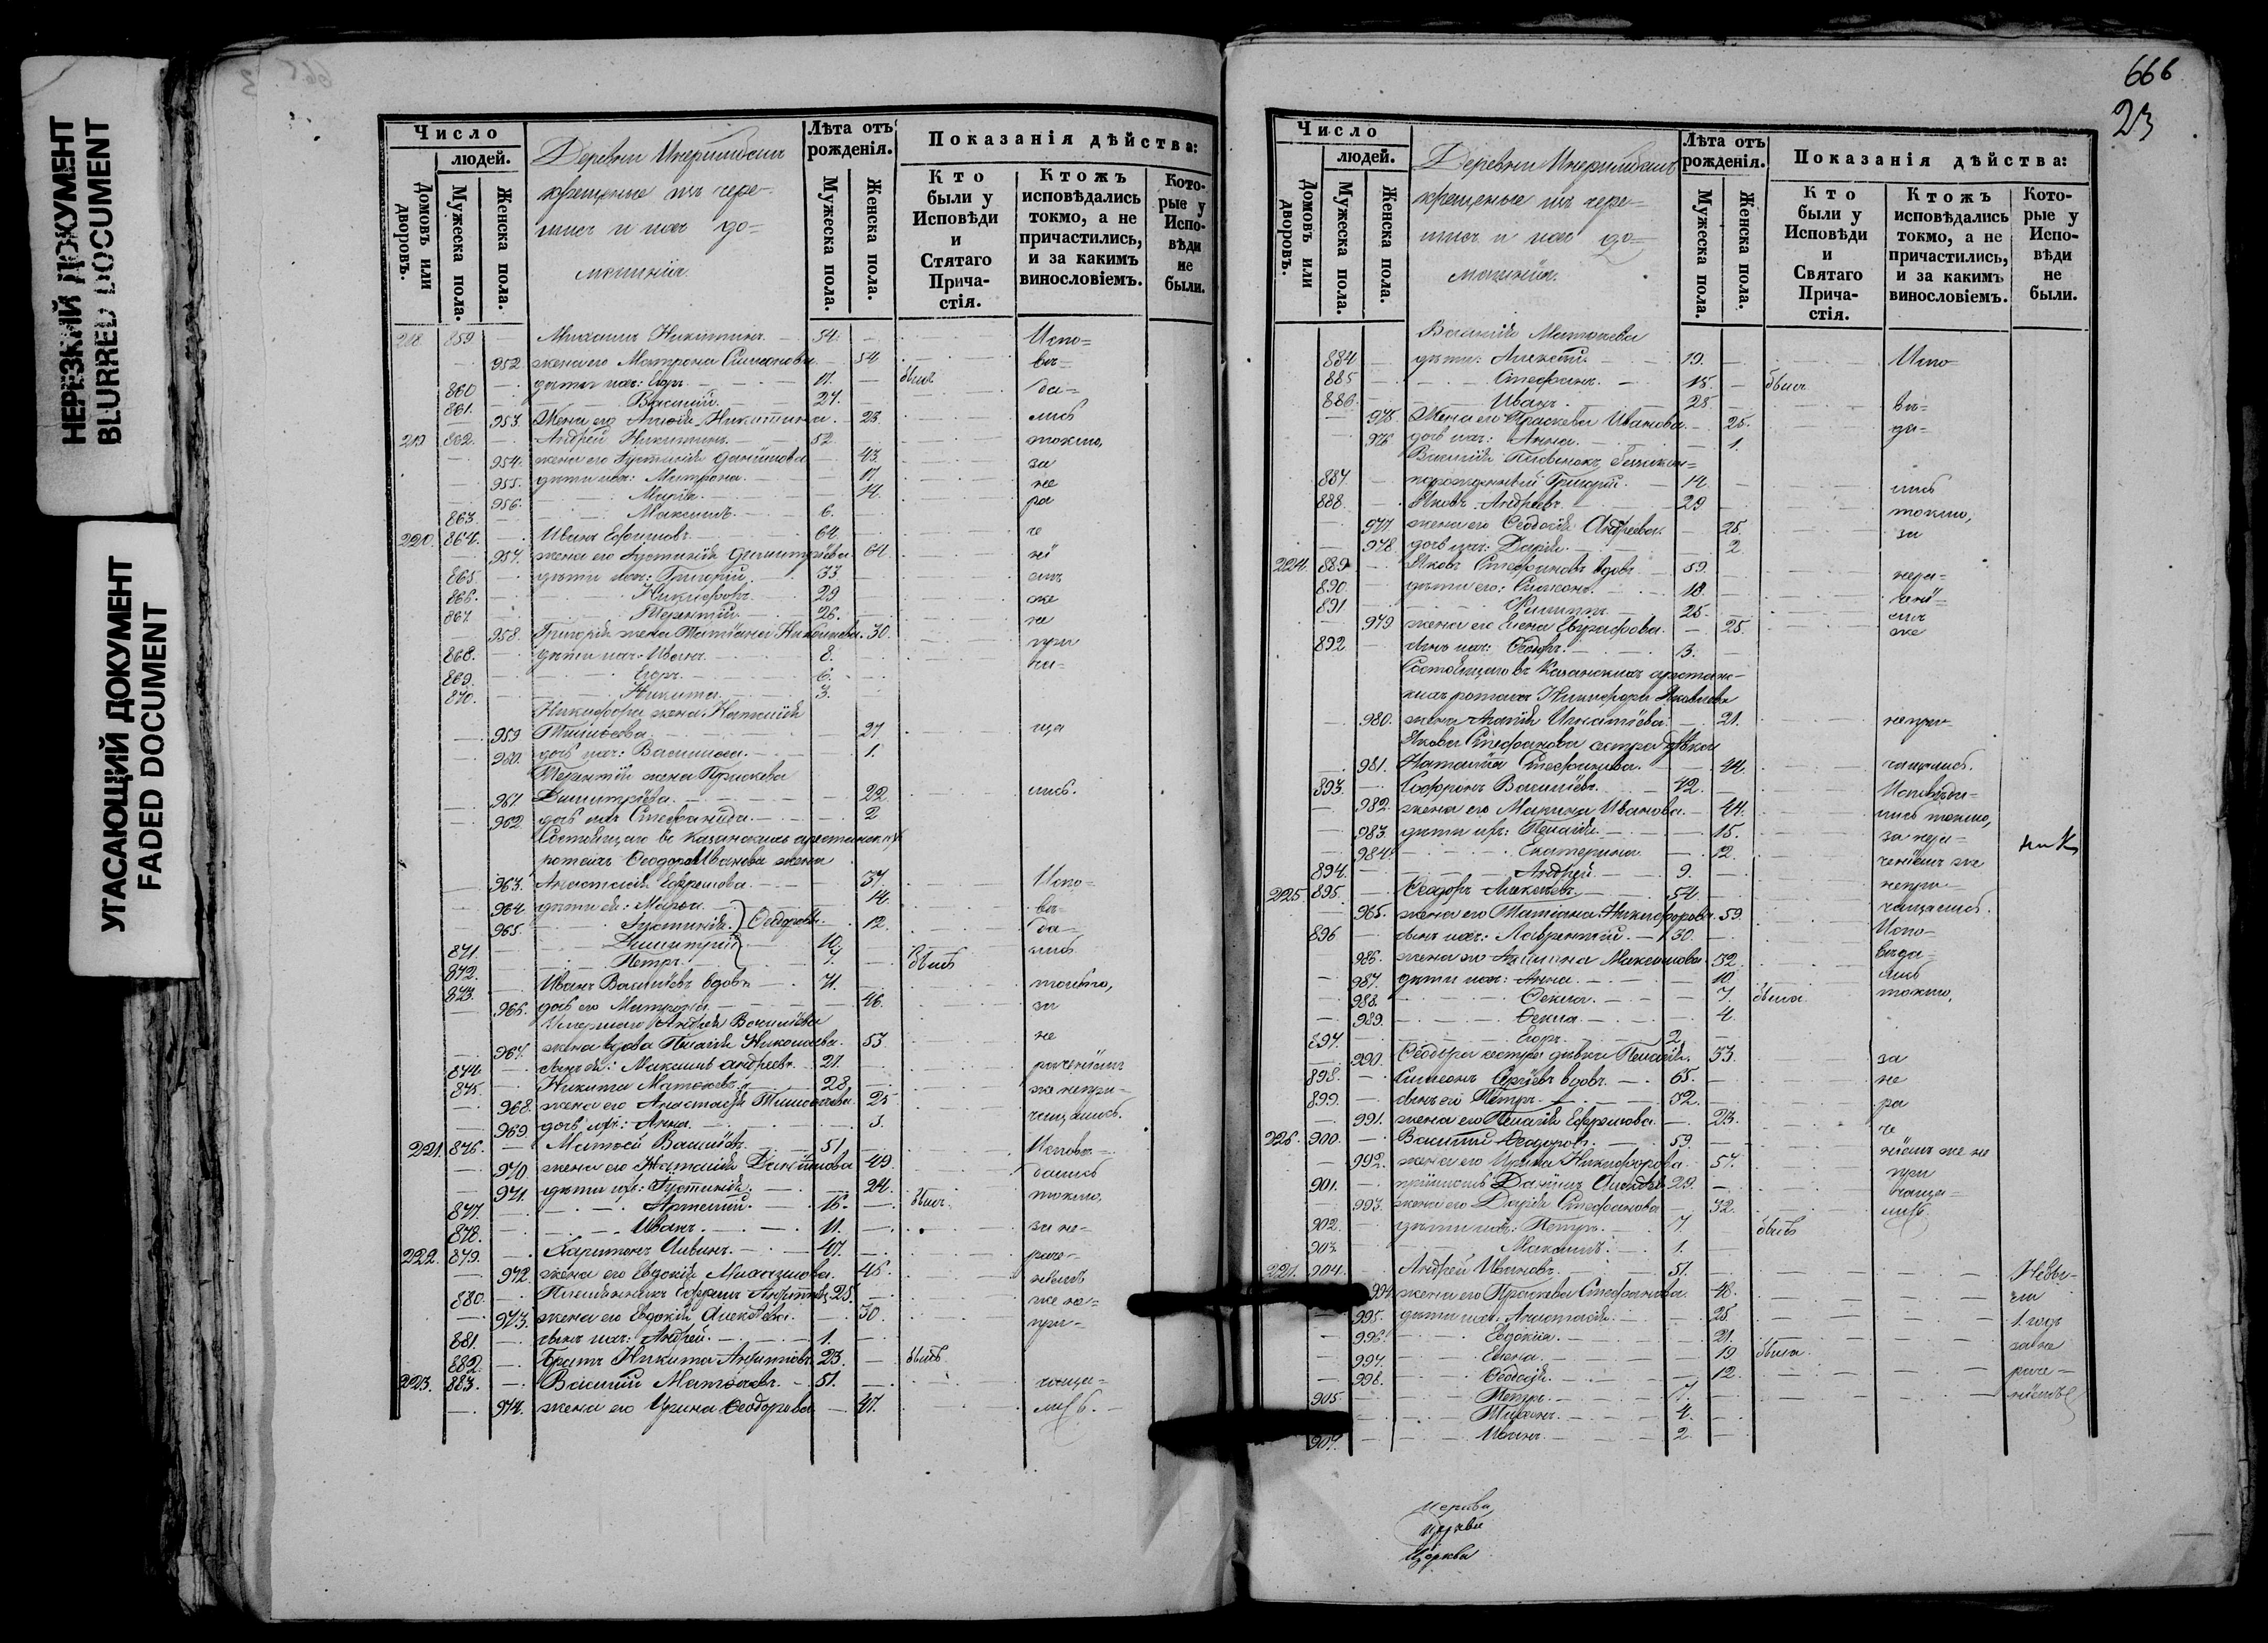 НЕРЕЗКИЙ ДОКУМЕНТ
BLURRED DOCUMENT
УГАСАЮЩИЙ ДОКУМЕНТ
FADED DOCUMENT
Число
людей.
Домовъ или дворовъ.
Мужеска пола.
Женска пола.
Деревни
крещеные изъ чере-
мисъ и ихъ до=
Лѣта отъ рожденія.
Мужеска пола.
Женска пола.
Показанія дѣйства:
Кто были у Исповѣди и Стятаго Прича-стія.
Ктожъ исповѣдались токмо, а не причастились, и за какимъ винословіемъ.
Кото-рые у Испо-вѣди не были.
218 859 Михаилъ Никитинъ 54. Испо=
952 жена его Матрона Симеонова 54 вѣ=
860 дѣти ихъ: Егоръ 17. былъ да=
861. Василій 27. лись
953 Жена его Никитина 23.
219 862. Андрей Никитинъ 52. токмо,
954. жена его Іустинія Даніилова 43. за
955. дѣти ихъ: Матрона 17 не
956. Марія 14. ра
863. Максимъ 6.
220. 864. Иванъ Ефимовъ 64. че
957. жена его Іустинія Димитріева 64. ні
865. дѣти ихъ: Григорій 33 емъ
866. Никифоръ 29 же
867. Терентій 26. не
958. Григорія жена Татіана 30. при
868. дѣти ихъ: Иванъ 8. ча=
869. Егоръ 6.
870. Никита 3.
Никифора жена Наталія
959 27 ща
960. дочь ихъ: Василиса 1.
Терентія жена Праскева
961 Димитріева 22 лись.
962 дочь ихъ Стефанида 2
Состоящаго въ Казанскихъ арестанскихъ
ротахъ Ѳеодора Иванова жена
963. Анастасія Ефремова 37 Испо=
964. дѣти ея: Марѳа 14. вѣ=
965. Іустинія Ѳеодоровы 12. да=
871. Димитрій 10. лись
872. Петръ 7. былъ
873. Иванъ Васильевъ вдовъ 71. токмо,
966. дочь его Матрона 46. за
Умершаго Андрея Васильева
967. жена вдова Пелагія Николаева 53 не
874. сынъ ея: Максимъ Андреевъ 21. раченіемъ
875. Никита Матѳеевъ 28. же непри-
968. жена его Анастасія 25 чащались.
969 дочь ихъ: Анна 3.
221. 876. Матѳей Васильевъ 51 Исповѣ-
970. жена его Наталія Даніилова 49. дались
971. дѣти ихъ: Іустинія 24. токмо,
877. Артемій 16. былъ
878. Иванъ 11. за не-
222. 879. Харитонъ 47. раче-
972. жена его Евдокія 45. ніемъ
880. Племянникъ Ефремъ 25. же не=
973. жена его Евдокія Алексѣева 30. при-
881. сынъ ихъ: Андрей 1.
882. Братъ Никита 23. былъ
223. 883. Василій Матѳеевъ 51. чаща-
974. жена его Ирина Ѳеодорова 47. лись.
666
23
Число
людей.
Домовъ или дворовъ.
Мужеска пола.
Женска пола.
Деревни
крещеные изъ чере=
мисъ и ихъ до=
Лѣта отъ рожденія.
Мужеска пола.
Женска пола.
Показанія дѣйства:
Кто были у Исповѣди и Святаго Прича-стія.
Ктожъ исповѣдались токмо, а не причастились, и за какимъ винословіемъ.
Кото-рые у Испо-вѣди не были.
Василія Матѳеева
884 дѣти: Алексѣй 19. Испо=
885 Стефанъ 15. былъ
886. Иванъ 25. вѣ=
975. Жена его Праскева Иванова 25. да=
976 дочь ихъ: Анна 1.
887. Григорій 14. лись
888. Яковъ Андреевъ 29 токмо,
977 жена его Ѳеодосія Андреева 25. за
978. дочь ихъ: Дарія 2
224. 889. Яковъ Стефановъ вдовъ 59. нера-
890. дѣти его: Симеонъ 18. чені-
891 Филиппъ 25. емъ
979 жена его Елена Евграфова 25. же
892 сынъ ихъ: Ѳеодоръ 3.
Состоящаго въ Казанскихъ арестанс-
кихъ ротахъ Никифора Яковлева
980. жена Игнатіева 21. непри-
Якова Стефанова сестра дѣвка
981. Наталія Стефанова 44. чащались.
893. Софронъ Васильевъ 42. Исповѣда-
982. жена его Марина Иванова 44. лись токмо,
983. дѣти ихъ: Пелагія 15. за нера-
984. Екатерина 12. ченіемъ же
894. Андрей 9. непри-
225. 895. Ѳеодоръ Алексѣевъ 54. чащались.
985. жена его Татіана Никифорова 59.
896 сынъ ихъ: Лаврентій 30. Испо-
986. жена его Максимова 32. вѣда-
987. дѣти ихъ: Анна 10. лись
988. Ѳекла 7. была токмо,
989. 4.
897. Егоръ 2
990. Ѳеодора сестра дѣвка Пелагія 53. за
898. Симеонъ Сергѣевъ вдовъ 65. не
899. сынъ его Петръ 32. ра
991. жена его Пелагія Ефремова 23. че
226. 900. Василій Ѳеодоровъ 59. ніемъ же не
992. жена его Ирина Никифорова 57. при
901. Даніилъ 29. чаща=
993. жена его Дарія Стефанова 32. лись.
902. дѣти ихъ: Петръ 7 былъ
903. Максимъ 1.
227. 904. Андрей Ивановъ 51. Небы-
994 жена его Праскева Стефанова 48. ли
995. дѣти ихъ: Анастасія 25. 1. годъ
996. Евдокія 21. за не
997. Елена 19 была раче-
998. Ѳеодосія 12. ніемъ
905. Петръ 7.
Тихонъ 4.
907. Иванъ 2
церква
церкви
Церква